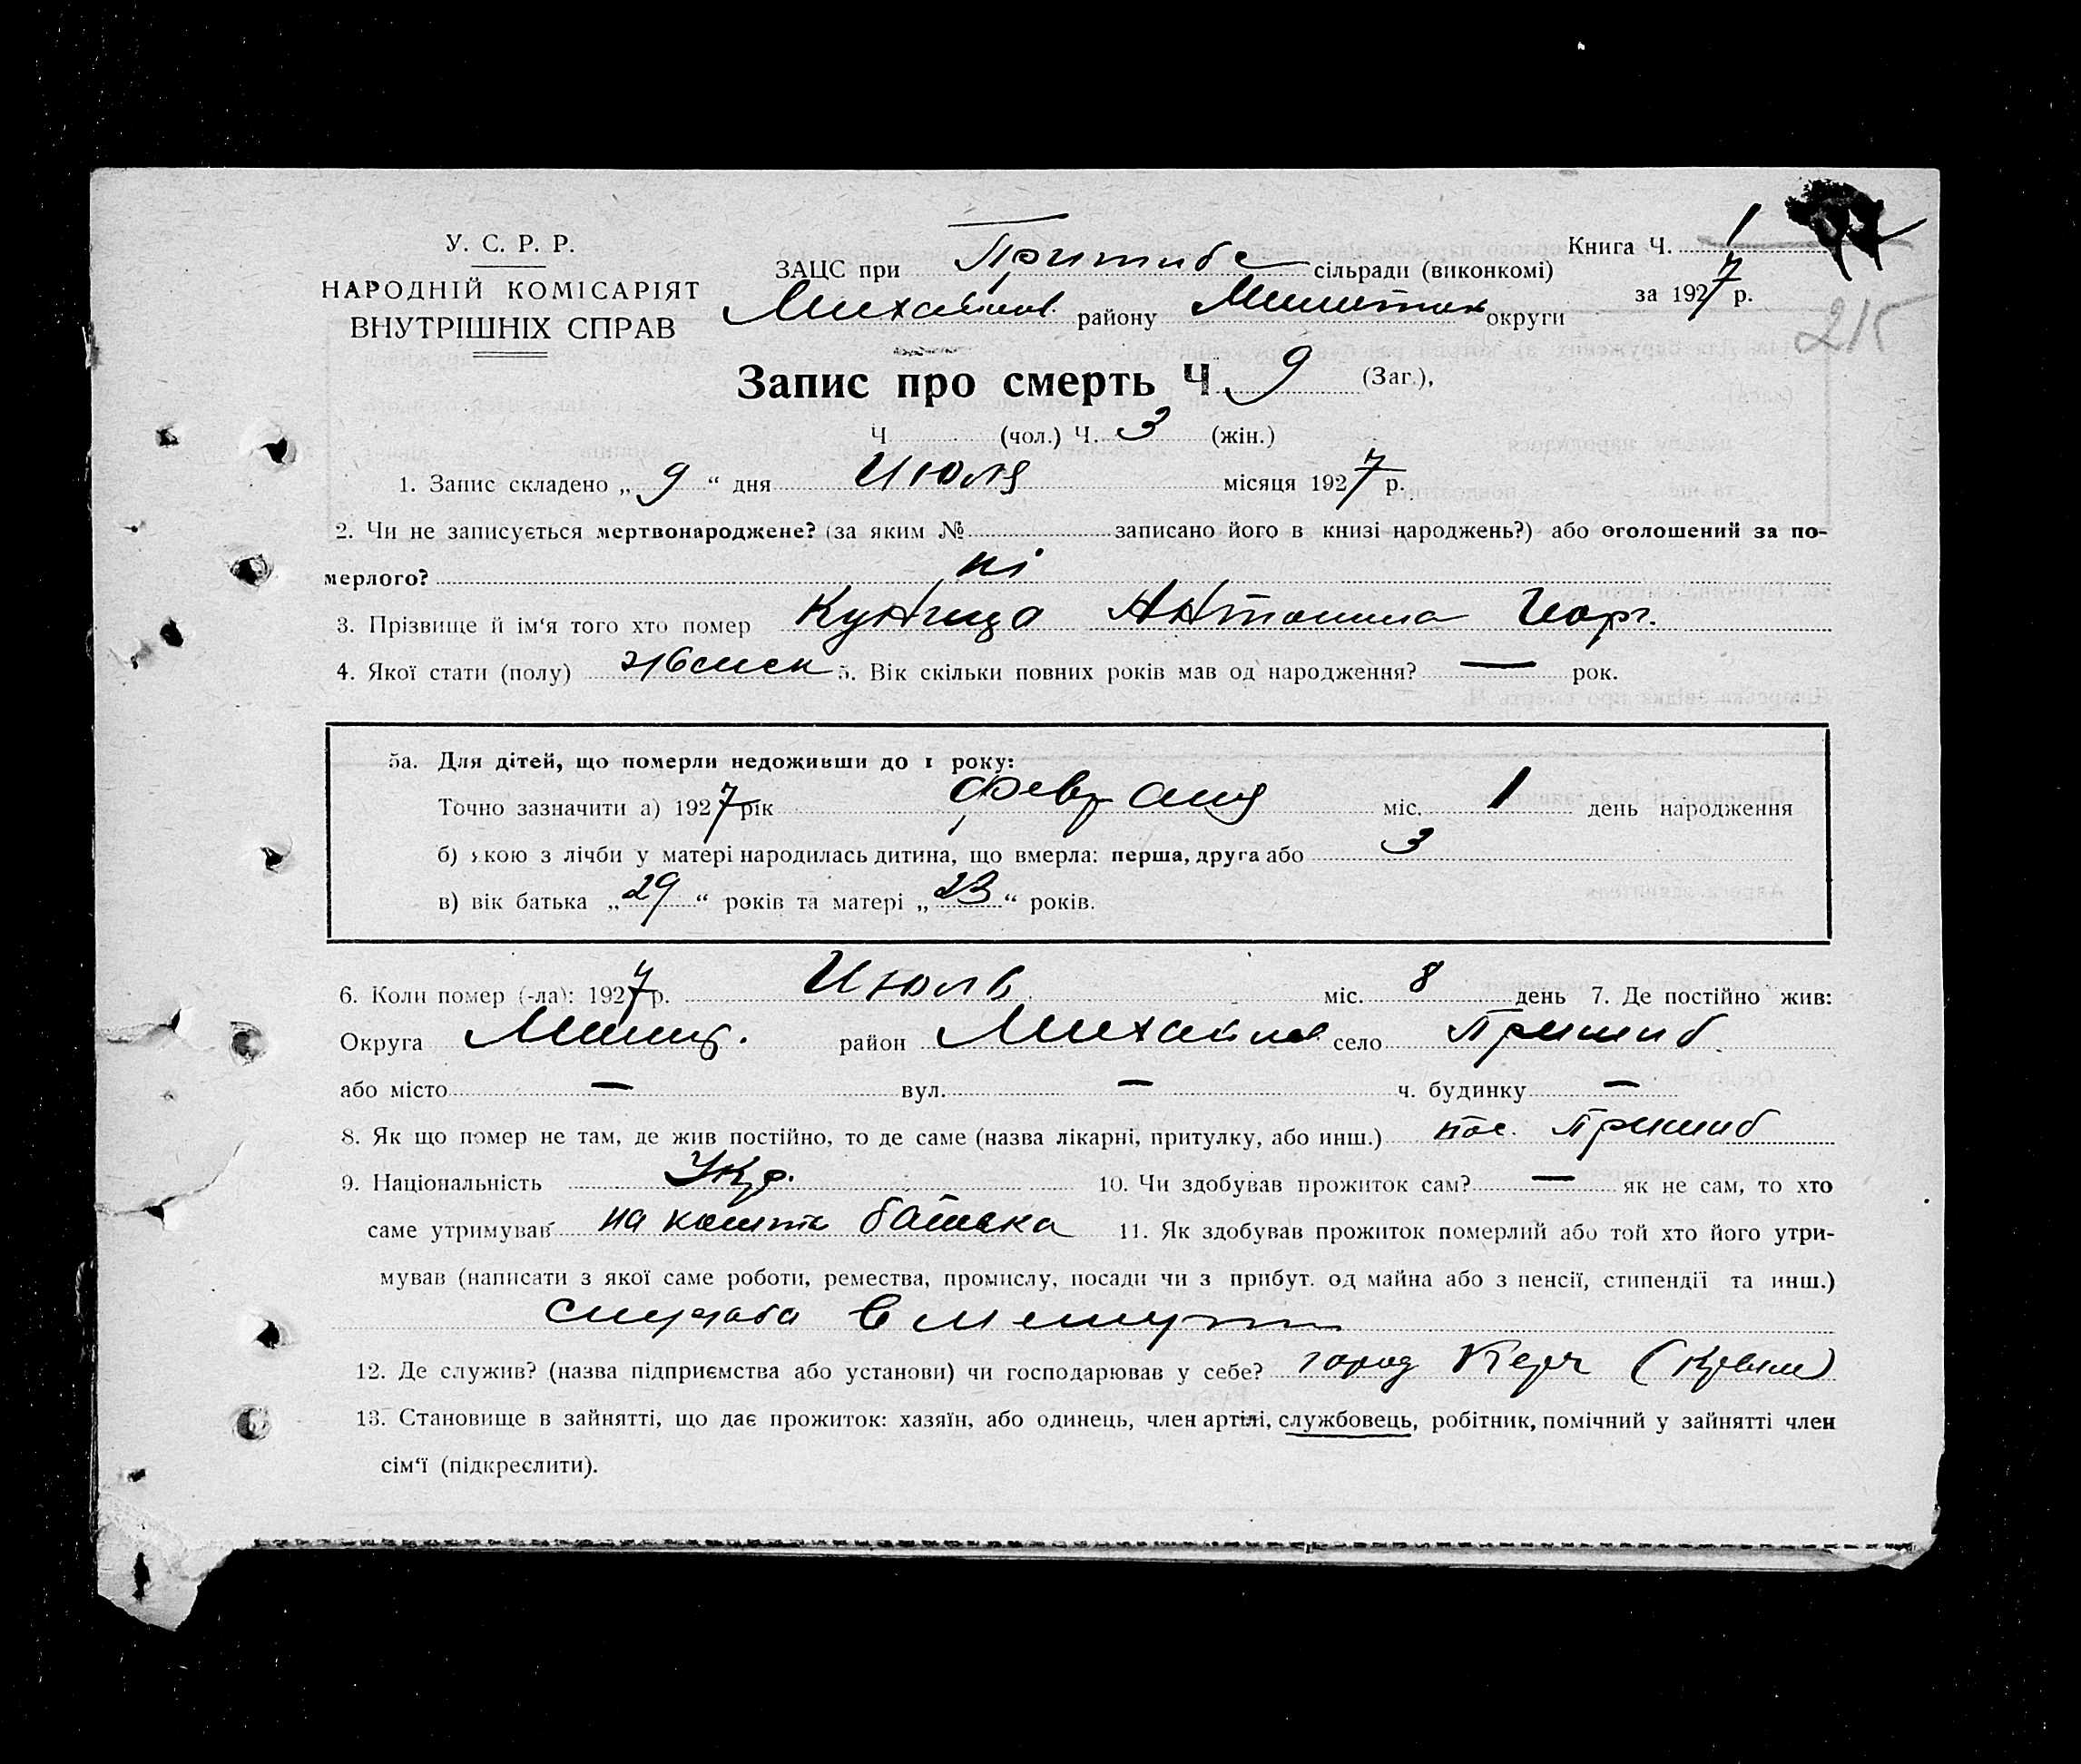 У. С. Р. Р.
НАРОДНІЙ КОМІСАРІЯТ
ВНУТРІШНІХ СПРАВ
Книга Ч. 1
за 1927 р.
215
ЗАЦС при Пришибс сільради (виконкомі)
Михайлов. району Мелитоп округи
Запис про смерть Ч 9 (Заг.),
Ч (чол.) Ч. 3 (жін.)
1. Запис складено „ 9 “ дня Июля місяця 1927 р.
2. Чи не записується мертвонароджене? (за яким № записано його в книзі народжень?) або оголошений за по-
мерлого? ні
3. Прізвище й ім‘я того хто помер Куница Антонина Георг.
4. Якої стати (полу) женск 5. Вік скільки повних років мав од народження? — рок.
5а. Для дітей, що померли недоживши до 1 року:
Точно зазначити а) 1927 рік Февраля міс. 1 день народження
б) якою з лічби у матері народилась дитина, що вмерла: перша, друга або 3
в) вік батька „ 29 “ років та матері „ 23 “ років.
6. Коли помер (-ла): 1927 р. Июль міс. 8 день 7. Де постійно жив:
Округа Мелит. район Михайлов село Пришиб.
або місто — вул. — ч. будинку —
8. Як що помер не там, де жив постійно, то де саме (назва лікарні, притулку, або инш.) пос. Пришиб
9. Національність Укр. 10. Чи здобував прожиток сам? — як не сам, то хто
саме утримував на кошти батька 11. Як здобував прожиток померлий або той хто його утри-
мував (написати з якої саме роботи, ремества, промислу, посади чи з прибут. од майна або з пенсії, стипендії та инш.)
служба в
12. Де служив? (назва підприємства або установи) чи господарював у себе? город Керч (Крым)
13. Становище в зайнятті, що дає прожиток: хазяїн, або одинець, член артілі, службовець, робітник, помічний у зайнятті член
сім‘ї (підкреслити).